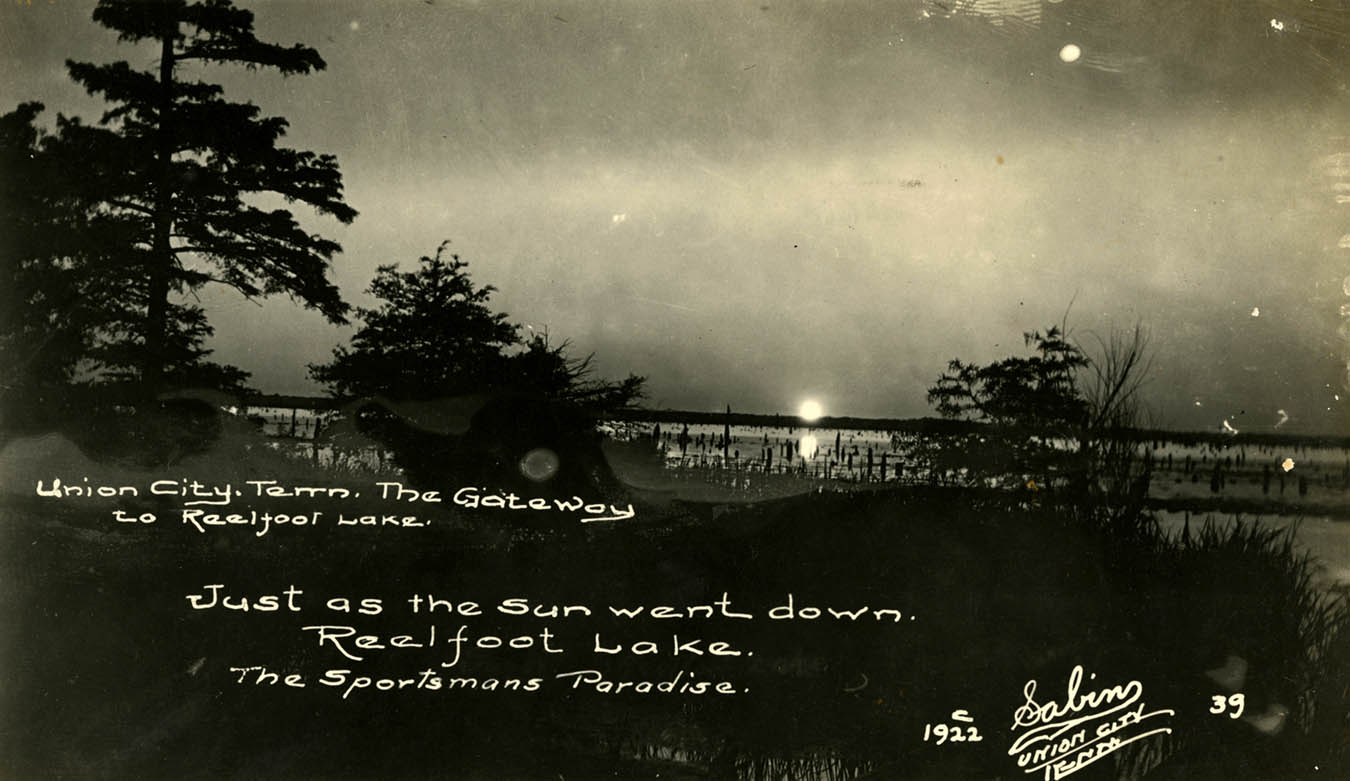 Union City. Tenn. The Gateway
to Reelfoot Lake.
Just as the sun went down.
Reelfoot Lake.
The Sportsmans Paradise.
c
1922
Sabins
UNION CITY
TENN
39